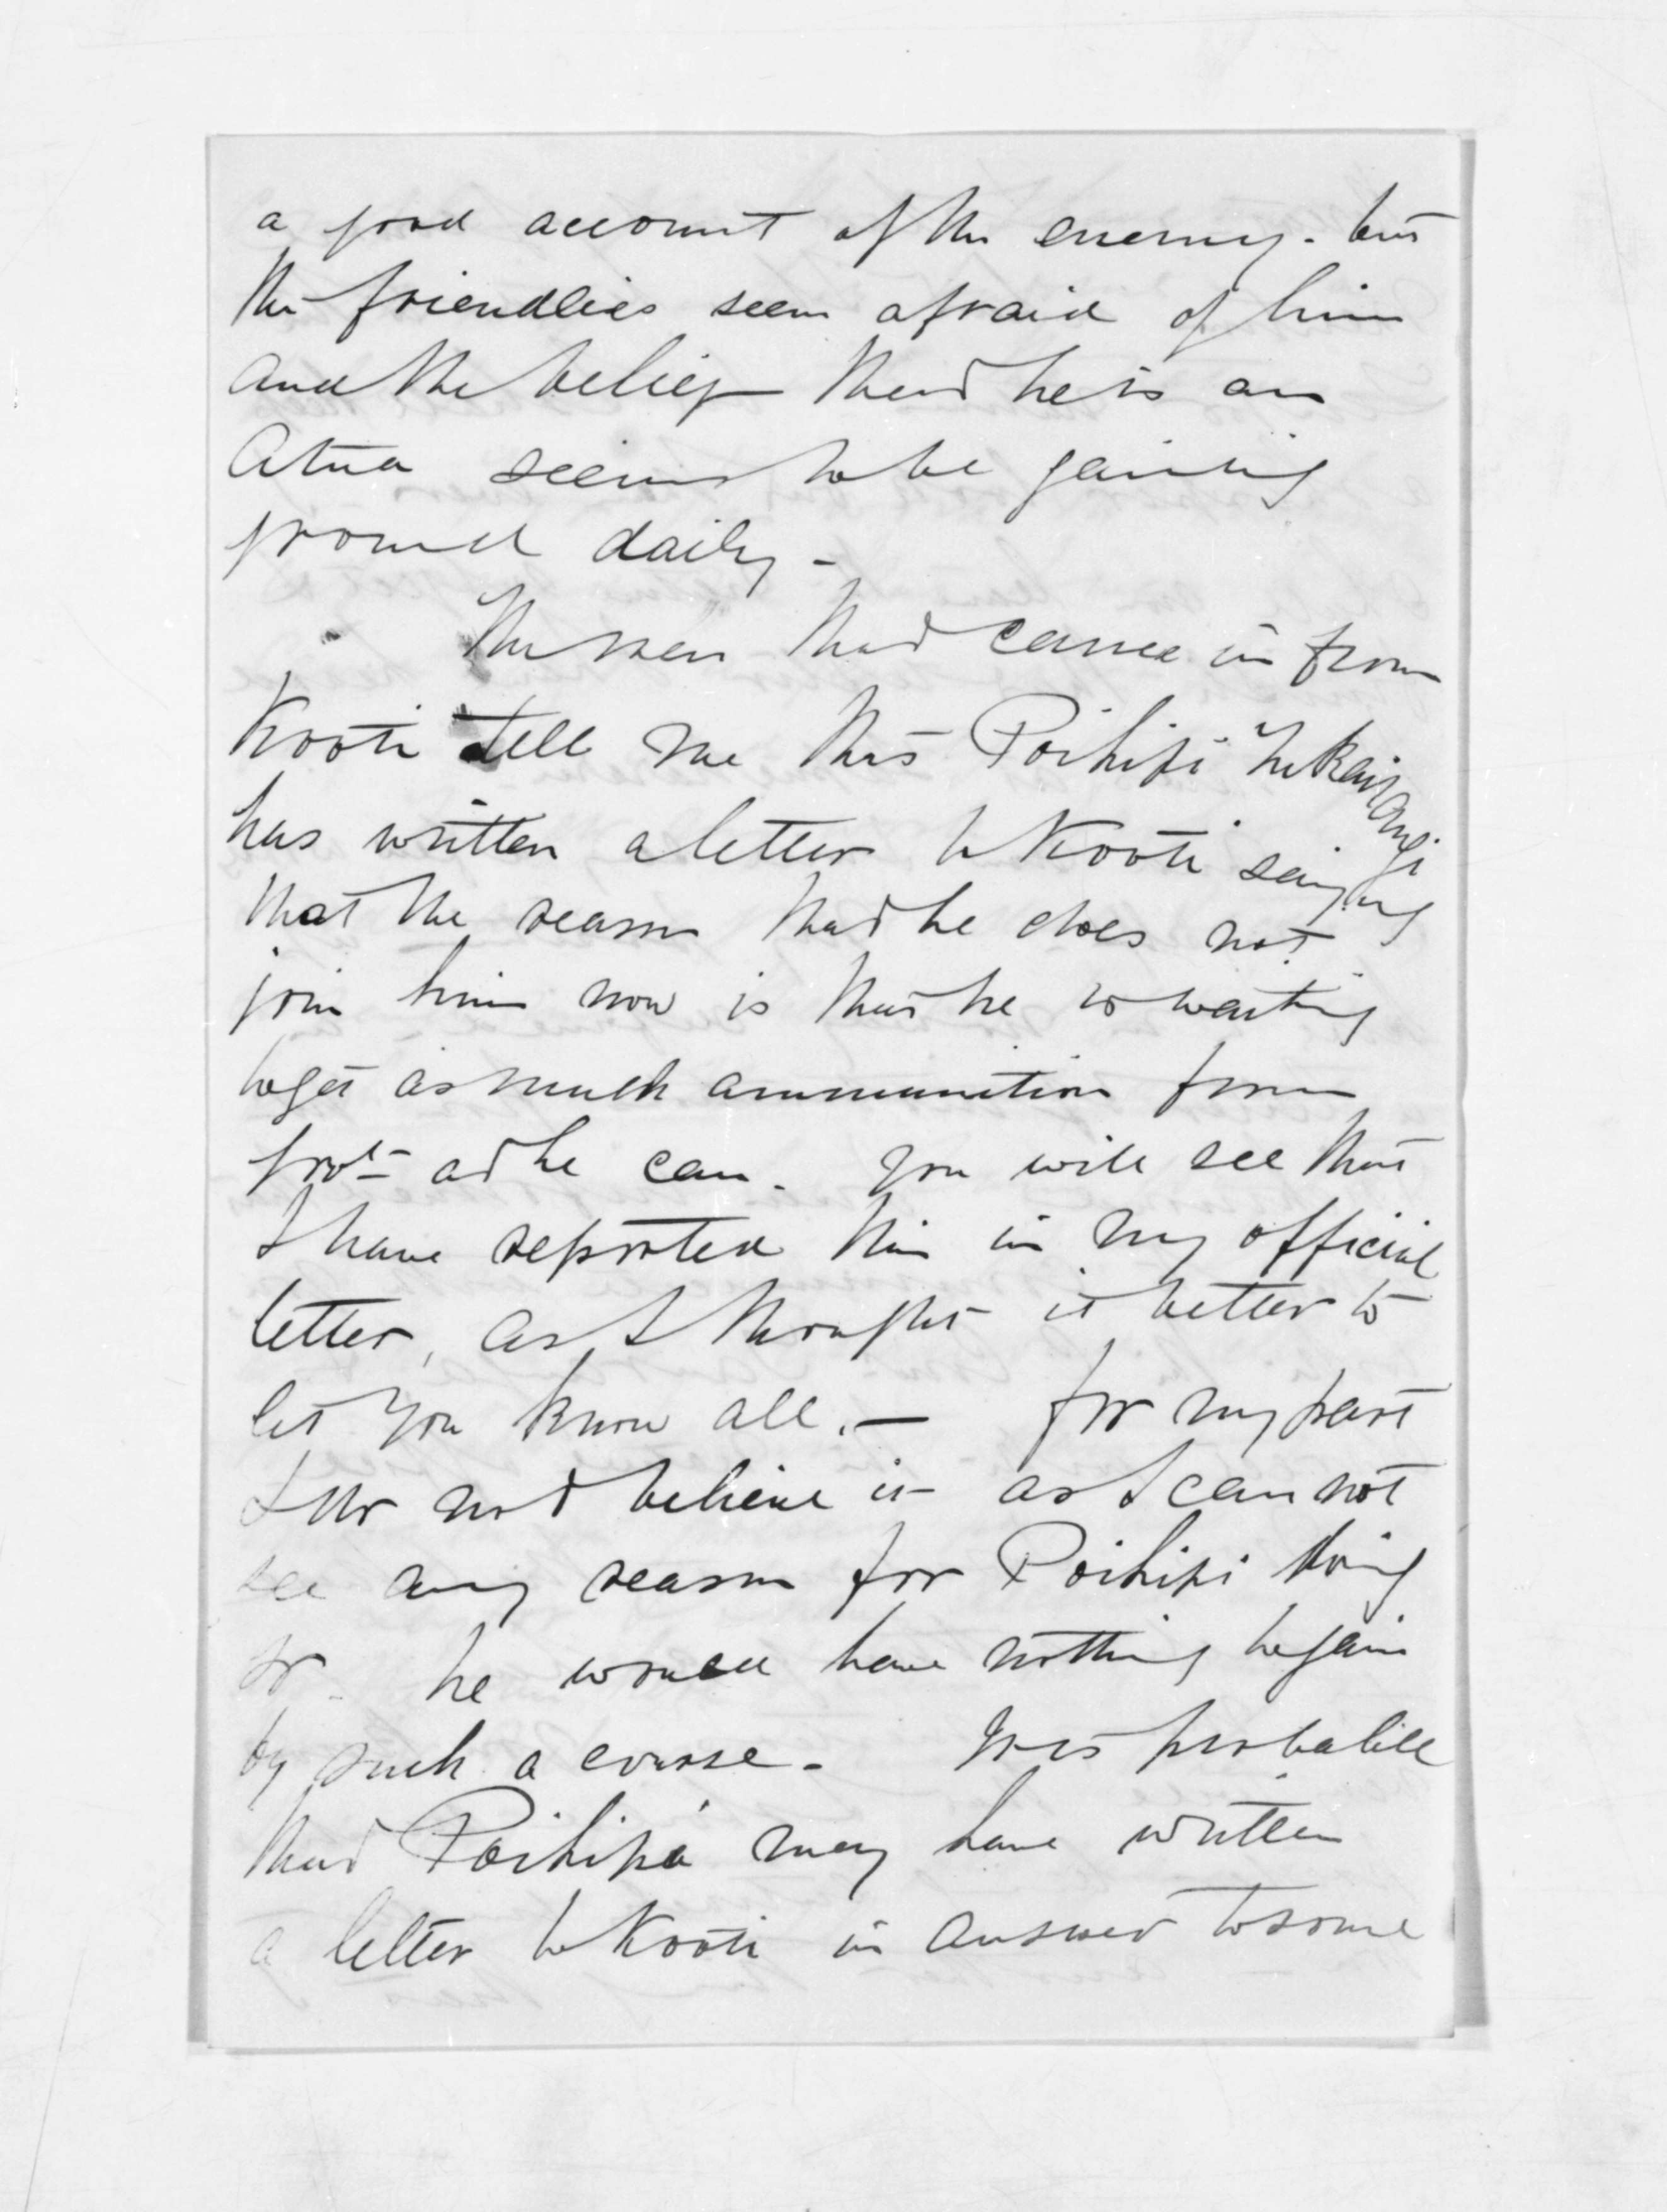 a good account of the enemy. but
the friendlies seem afraid of him
and the belief that he is an
Atua seems to be gaining
ground daily -
The men that came in from
Kooti tell me that Poihipi Tukairangi
has written a letter to Kooti saying
that the reason that he does not
join him now is that he is waiting
to get as much ammunition from
Govt as he can. You will see that
I have reported this in my official
letter, as I thought it better to
let you know all. — for my part
I do not believe it as I can not
see any reason for Poihipi doing
so. he would have nothing to gain
by such a course - It is probable
that Poihipi may have written
a letter to Kooti in answer to some